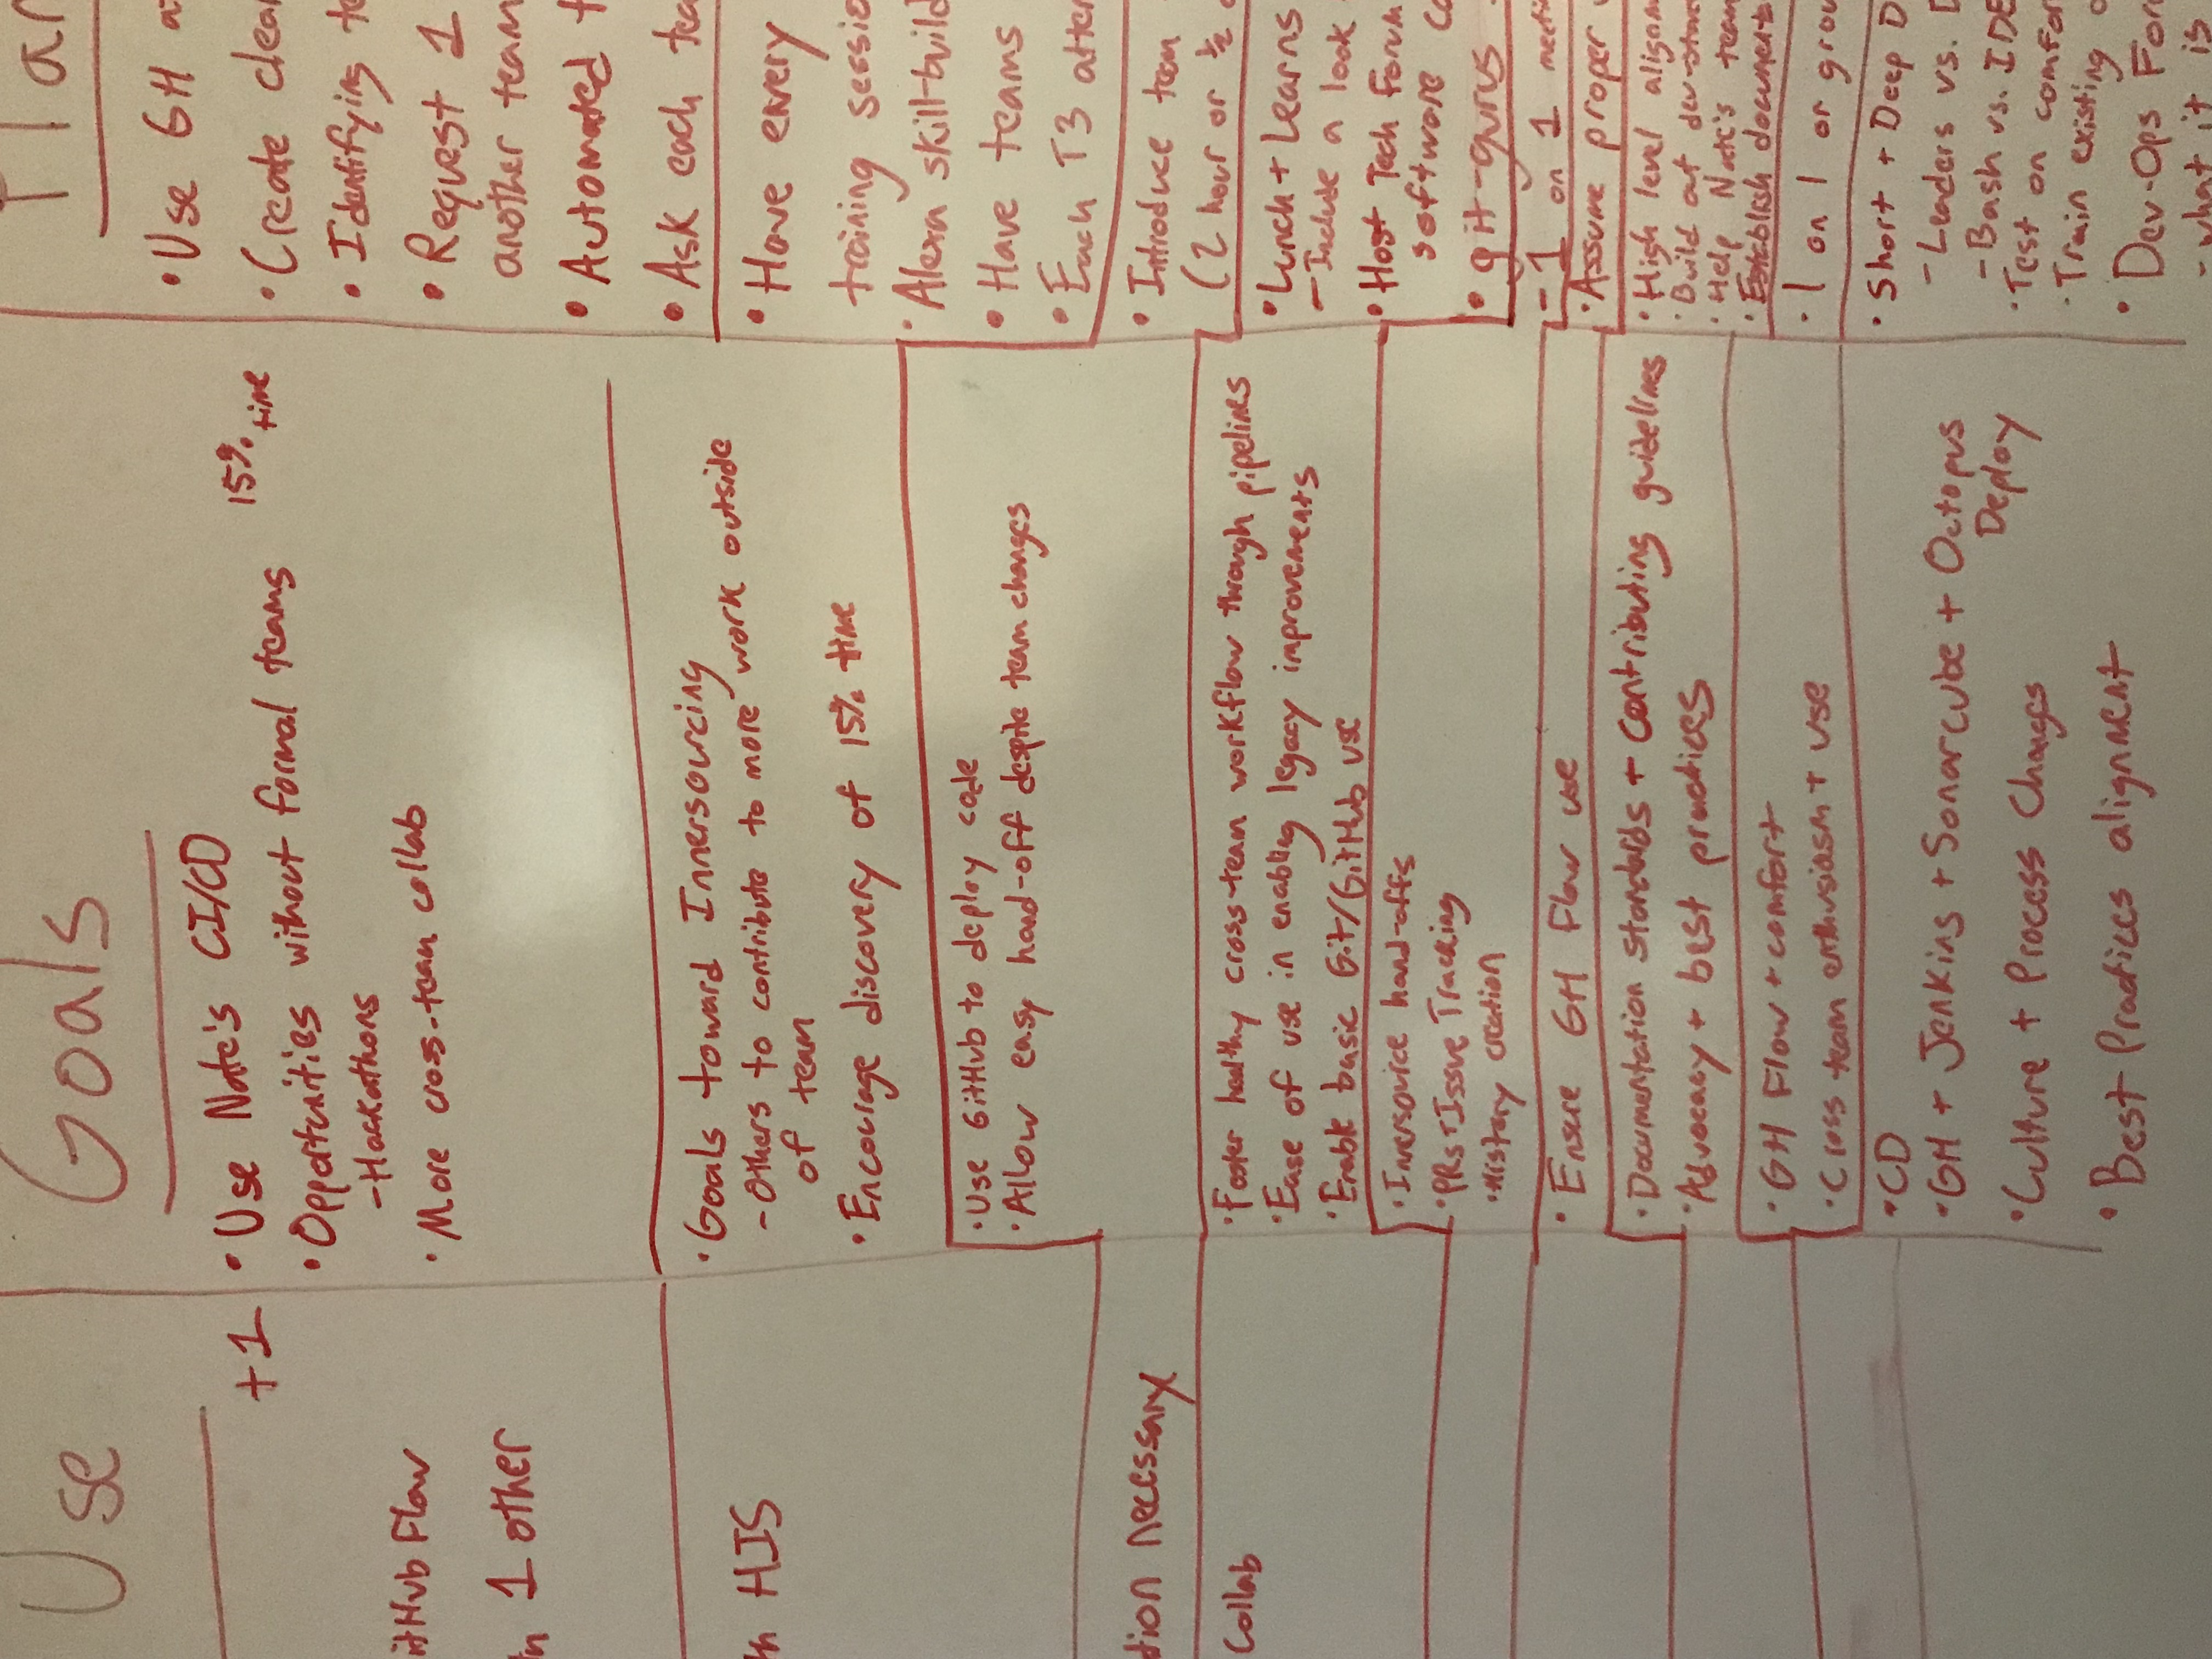 Use
+1
itHub Flow
1 other
HIS
tion necessary
Collab
Goals
• Use Nate's CI/CD
• Opportunities without formal teams
15% time
- Hackathons
• More cross-team collab
• Goals toward Innersourcing
- Others to contribute to more work outside
of team
• Encourage discovery of 15% time
• Use GitHub to deploy code
• Allow easy hand-off despite team changes
• Foster healthy cross-team workflow through pipelines
• Ease of use in enabling legacy improvements
• Enable basic Git/GitHub use
• Innersource hand-offs
• PRs + Issue Tracking
• History creation
• Ensure GH Flow use
• Documentation standards + contributing guidelines
• Advocacy + best practices
• GH Flow + comfort
• Cross team enthusiasm + use
• CD
• GH + Jenkins + Sonarcube + Octopus
Deploy
• Culture + Process Changes
• Best Practices alignment
Plan
• Use GH
• Create clea
• Identifying te
• Request 1
another team
• Automated t
• Ask each tea
• Have every
training sessio
• Alexa skill-build
• Have teams
• Each T3 atten
• Introduce team
(2 hour or ½
• Lunch + Learns
- Include a look
• Host Tech Forum
software co
• git-gurus
- 1 on 1 meeti
• Assume proper
• High level alignm
• Build out dev-stan
• Help Nate's team
• Establish documenta
• 1 on 1 or grou
• Short + Deep D
- Leaders vs. D
- Bash vs. IDE
• Test on comfor
• Train existing
• Dev-Ops For
- what it is